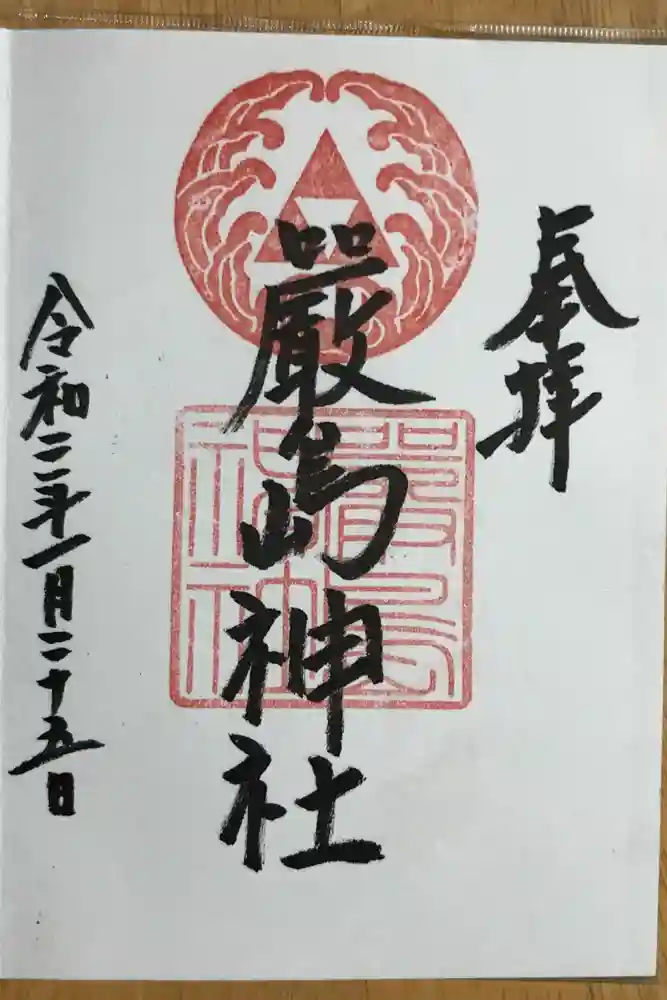 奉拝
嚴島神社
令和二年一月二十五日
嚴島
神社